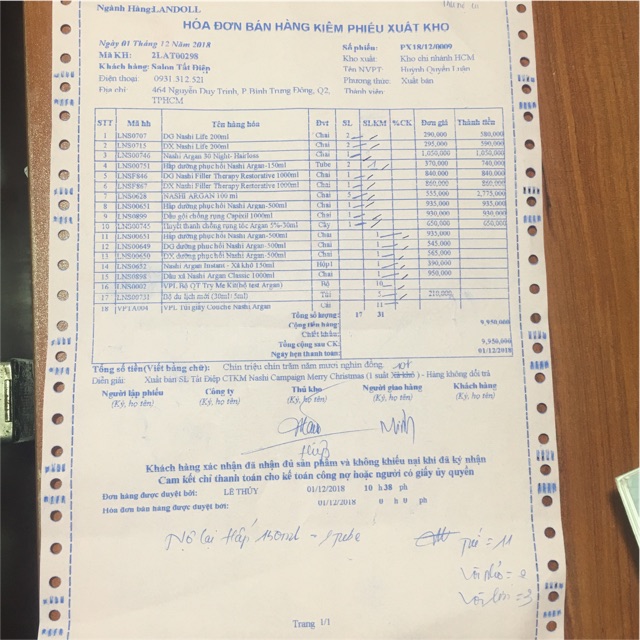 Ngành Hàng:LANDOLL
HÓA ĐƠN BÁN HÀNG KIÊM PHIẾU XUẤT KHO
Ngày 01 Tháng 12 Năm 2018 Số phiếu: PX18/12/0009
Mã KH: 2LAT00298 Kho xuất: Kho chi nhánh HCM
Khách hàng: Salon Tất Điệp Tên NVPT: Huỳnh Quyền Luân
Điện thoại 0931 312 521 Phương thức: Xuất bán
Địa chỉ 464 Nguyễn Duy Trinh, P Bình Trưng Đông, Q2, TPHCM Thành viên:
STT Mã hh Tên hàng hóa Đvt SL SLKM %CK Đơn giá Thành tiền
1 LNS0707 DG Nashi Life 200ml Chai 2 290,000 580,000
2 LNS0715 DX Nashi Life 200ml Chai 2 295,000 590,000
3 LNS00746 Nashi Argan 30 Night- Hairloss Chai 1 1,050,000 1,050,000
4 LNS00751 Hấp dưỡng phục hồi Nashi Argan-150ml Tube 2 1 370,000 740,000
5 LNSF846 DG Nashi Filler Therapy Restorative 1000ml Chai 1 840,000 840,000
6 LNSF867 DX Nashi Filler Therapy Restorative 1000ml Chai 1 860,000 860,000
7 LNS0628 NASHI ARGAN 100 ml Chai 5 555,000 2,775,000
8 LNS00651 Hấp dưỡng phục hồi Nashi Argan-500ml Chai 1 935,000 935,000
9 LNS0899 Dầu gội chống rụng Capixil 1000ml Chai 1 930,000 930,000
10 LNS00745 Huyết thanh chống rụng tóc Argan 5%-30ml Cây 1 650,000 650,000
11 LNS00651 Hấp dưỡng phục hồi Nashi Argan-500ml Chai 1 935,000
12 LNS00649 DG dưỡng phục hồi Nashi Argan-500ml Chai 1 545,000
13 LNS00650 DX dưỡng phục hồi Nashi Argan-500ml Chai 1 565,000
14 LNS0632 Nashi Argan Instant - Xả khô 150ml Hộp1 1 390,000
15 LNS0898 Dầu xả Nashi Argan Classic 1000ml Chai 1 950,000
16 LNS0002 VPL Bộ QT Try Me Kit(bộ test Argan) Bộ 10
17 LNS00731 Bộ du lịch mới (30ml+5ml) Túi 5 210,000
18 VPTA004 VPL Túi giấy Couche Nashi Argan Cái 11
Tổng số lượng: 17 31
Cộng tiền hàng: 9,950,000
Chiết khấu:
Tổng cộng sau CK: 9,950,000
Ngày hẹn thanh toán: 01/12/2018
Tổng số tiền(Viết bằng chữ): Chín triệu chín trăm năm mươi nghìn đồng.
Diễn giải: Xuất bán SL Tất Điệp CTKM Nashi Campaign Merry Christmas (1 suất Xả khô) - Hàng không dổi trả
Người lập phiếu Công ty Thủ kho Người giao hàng Khách hàng
(Ký, họ tên) (Ký, họ tên) (Ký, họ tên) (Ký, họ tên) (Ký, họ tên)
Minh
Khách hàng xác nhận đã nhận đủ sản phẩm và không khiếu nại khi đã ký nhận
Cam kết chỉ thanh toán cho kế toán công nợ hoặc người có giấy ủy quyền
Đơn hàng được duyệt bởi: LÊ THỦY 01/12/2018 10 h 38 ph
Hóa đơn bán hàng được duyệt bởi: 01/12/2018 0 h 0 ph
Nợ lại Hấp 150ml - 1 tube
túi = 11
Vòi nhỏ = 2
Vòi lớn = 3
Trang 1/1